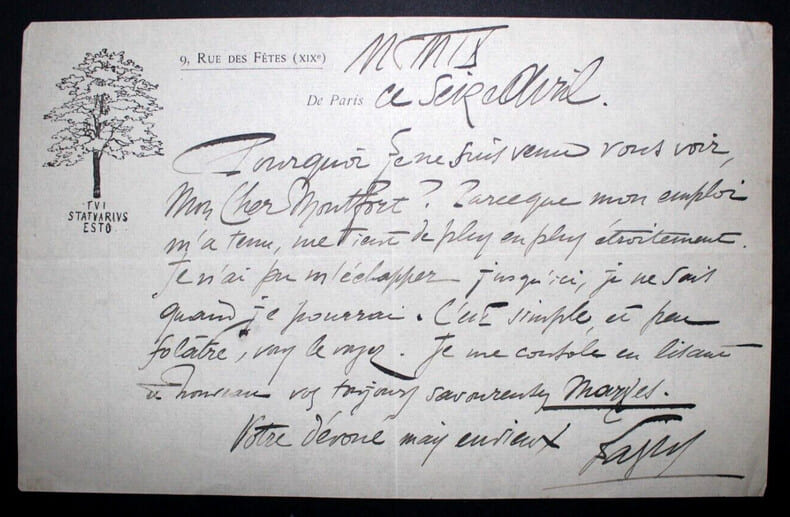 9, RUE DES FÊTES (XIXe)
MMIX
De Paris ce Seize Avril.
TVI
STATVARIVS
ESTO
Pourquoi je ne suis venu vous voir,
Mon Cher Montfort ? Parceque mon emploi
m'a tenu, me tient de plus en plus étroitement.
Je n'ai pu m'échapper jusqu'ici, je ne sais
quand je pourrai. C'est simple, et peu
folâtre, vous le voyez. Je me console en lisant
à nouveau vos toujours savoureuses Marges.
Votre dévoué mais envieux